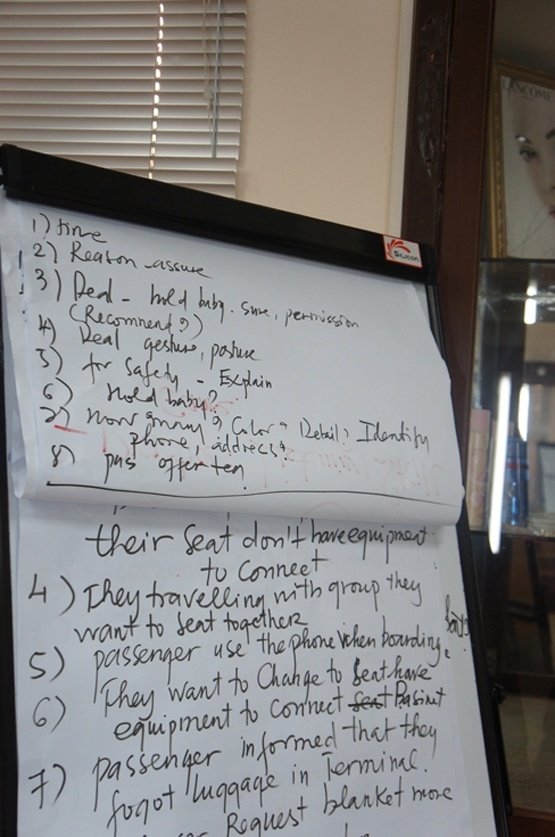 LANCOME
Silicon
1) time
2) Reason - assure
3) Deal - hold baby. sure, permission
(Recommend?)
4) Deal gesture, posture
5) for safety - Explain
6) Hold baby?
7) How many? Color? Detail? Identify
phone, address?
8) pas offer tea
their Seat don't have equipment
to connect
4) They travelling with group they
want to seat together
5) passenger use the phone when boarding.
6) They want to change to seat have
equipment to connect Basinet
7) passenger informed that they
fogot luggage in Terminal.
Request blanket more